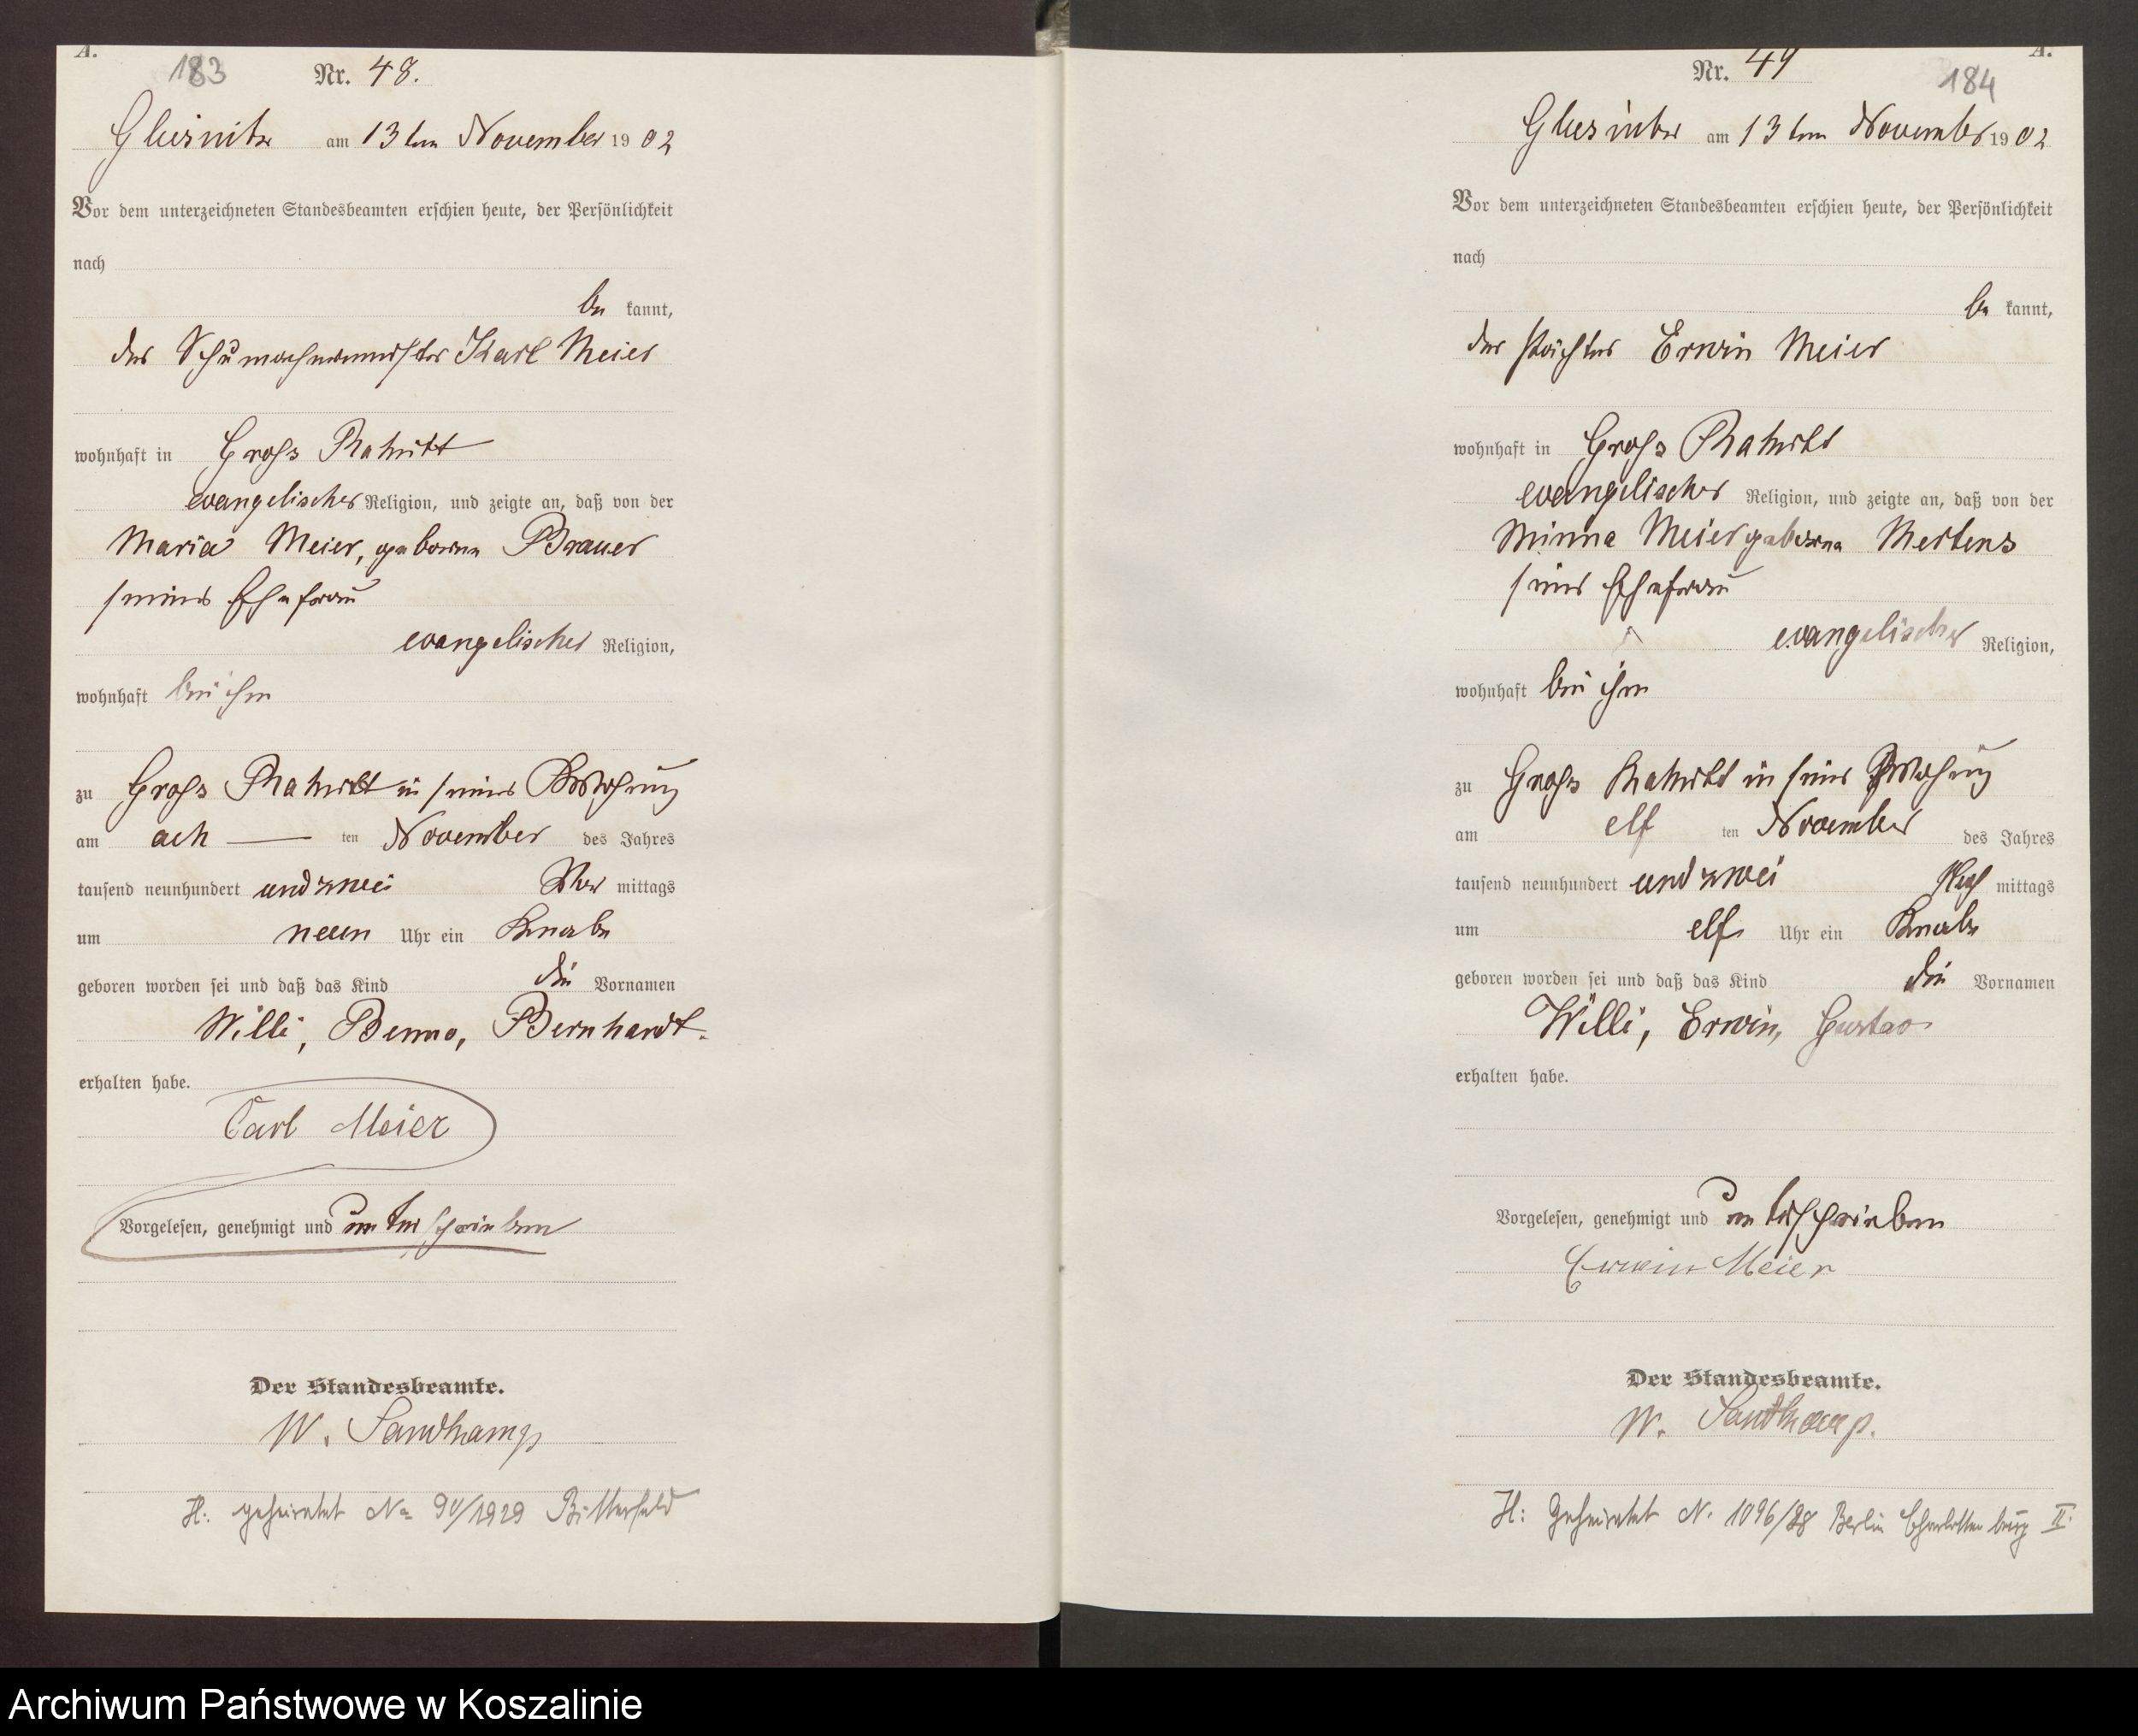 A.
183
Nr. 48.
Glusnitz am 13ten November 1902
Vor dem unterzeichneten Standesbeamten erschien heute, der Persönlichkeit
nach
be kannt,
der Schumachermeister Karl Meier
wohnhaft in Gross Rakitt
evangelischer Religion, und zeigte an, daß von der
Maria Meier, geborene Brauer
seiner Ehefrau
evangelischer Religion,
wohnhaft bei ihm
zu Gross Rakitt in seiner Wohnung
am acht ten November des Jahres
tausend neunhundert und zwei Vor mittags
um neun Uhr ein Knabe
geboren worden sei und daß das Kind die Vornamen
Willi, Benno, Bernhardt.
erhalten habe.
Carl Meier
Vorgelesen, genehmigt und unterschrieben
Der Standesbeamte.
W. Sandkamp
H: geheiratet No 90/1929 Bitterfeld
A.
Nr. 49
184
Glusnitz am 13ten November 1902
Vor dem unterzeichneten Standesbeamten erschien heute, der Persönlichkeit
nach
be kannt,
der Pächter Erwin Meier
wohnhaft in Gross Rakitt
evangelischer Religion, und zeigte an, daß von der
Minna Meier geborene Mertens
seiner Ehefrau
evangelischer Religion,
wohnhaft bei ihm
zu Gross Rakitt in seiner Wohnung
am elf ten November des Jahres
tausend neunhundert und zwei Nach mittags
um elf Uhr ein Knabe
geboren worden sei und daß das Kind die Vornamen
Willi, Erwin, Gustav
erhalten habe.
Vorgelesen, genehmigt und unterschrieben
Erwin Meier
Der Standesbeamte.
W. Sandkamp.
H: Geheiratet N. 1096/28 Berlin Charlottenburg II.
Archiwum Państwowe w Koszalinie